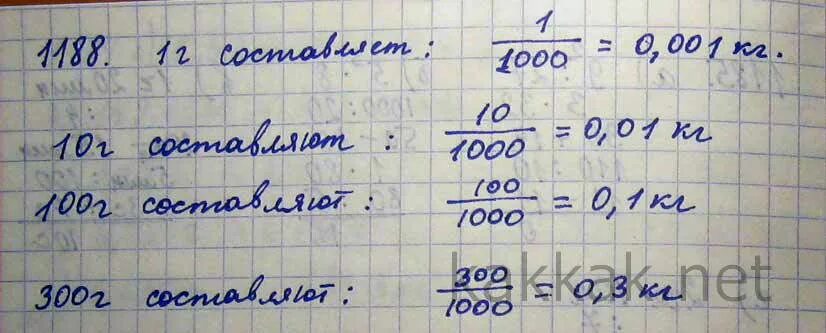 1188. 1г составляет: 1/1000 = 0,001 кг.
10г составляют: 10/1000 = 0,01 кг
100г составляют: 100/1000 = 0,1 кг
300г составляют: 300/1000 = 0,3 кг
kakkak.net